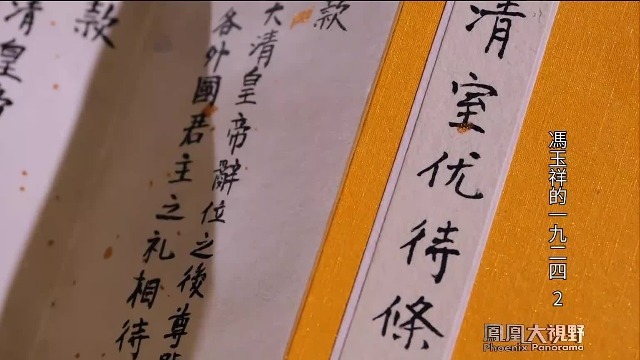 馮玉祥的一九二四 2
清室优待條
款
大清皇帝辭位之後尊
各外國君主之礼相待
款
清皇帝
鳳凰大視野
Phoenix Panorama